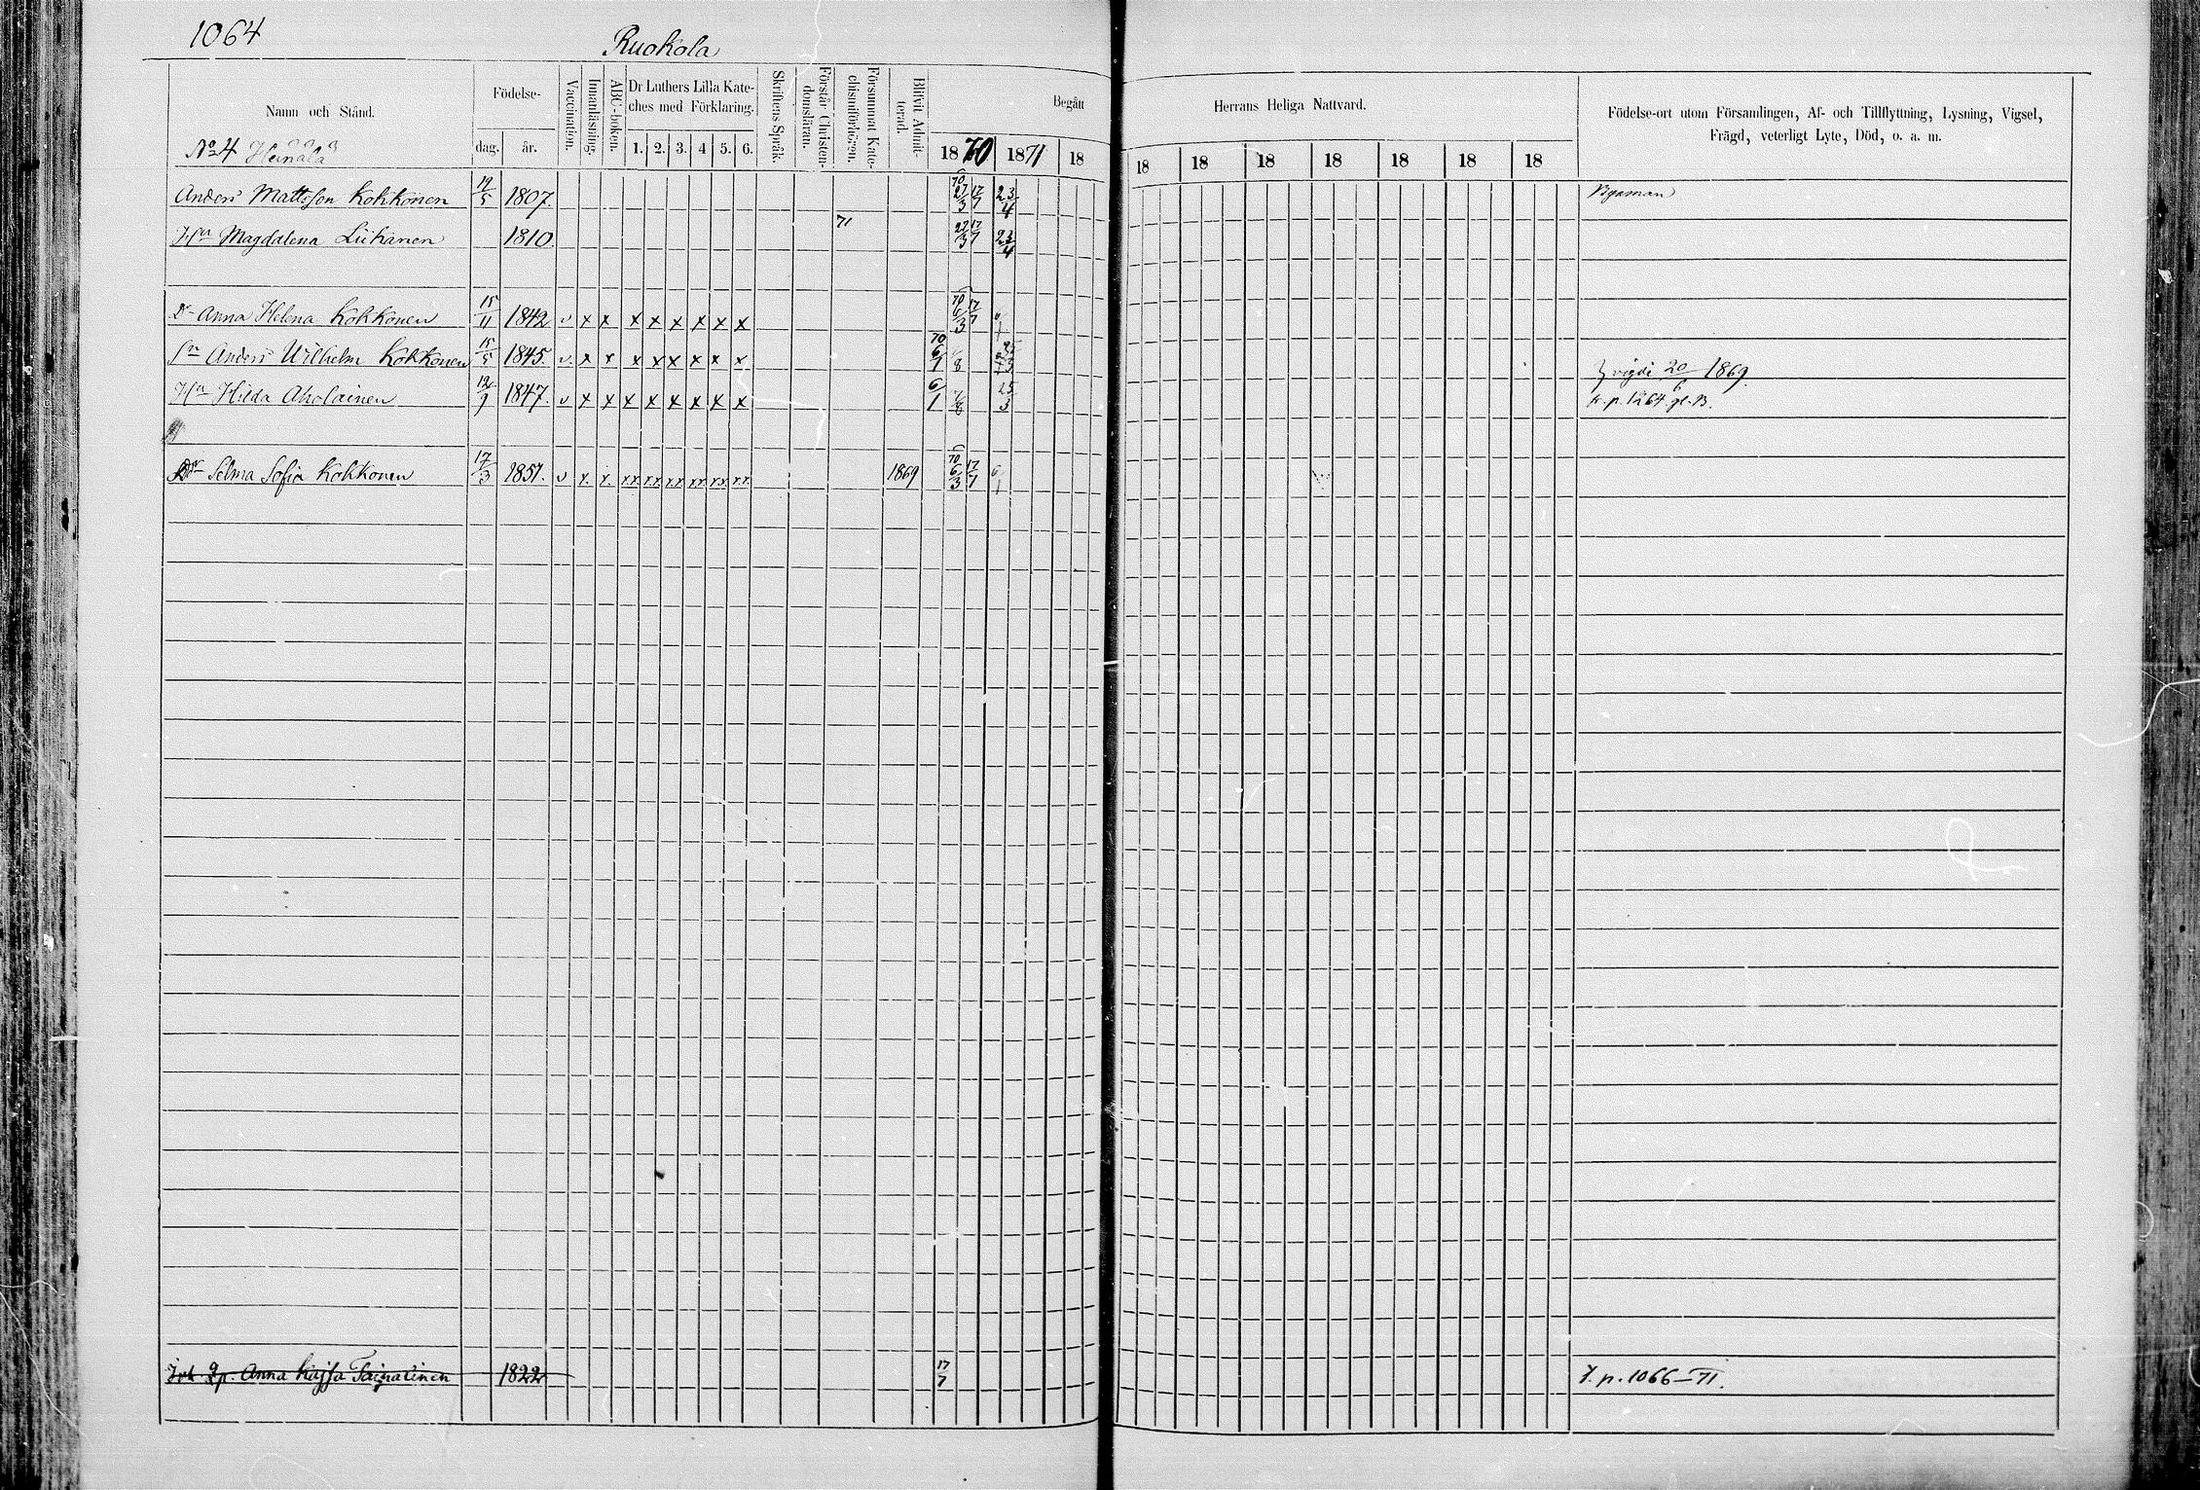 1064
Ruokola
Namn och Stånd.
Födelse-
dag. år.
Vaccination.
Innanläsning.
ABC-boken.
Dr Luthers Lilla Kate-
ches med Förklaring.
1. 2. 3. 4 5. 6.
Skriftens Språk.
Förstår Christen-
domsläran.
Försummat Kate-
chismiförhören.
Blifvit Admit-
terad.
Begått
Herrans Heliga Nattvard.
1870 1871 18 18 18 18 18 18 18 18
Födelse-ort utom Församlingen, Af- och Tillflyttning, Lysning, Vigsel,
Frägd, veterligt Lyte, Död, o. a. m.
No 4 Heinälä
Anders Mattsson Kokkonen 19/5 1807. 70 27/3 17/7 23/4
Hu Magdalena Liikanen 1810 71 27/3 17/7 23/4
Dr Anna Helena Kokkonen 15/11 1842 v x x x x x x x x 70 6/3 17/7
Sn Anders Wilhelm Kokkonen 15/5 1845. v x x x x x x x x 70 6/1 25/3 vigdi 20/6 1869
Hu Hilda Aholainen 12/9 1847. v x x x x x x x x 6/1 25/3 fr. p. 1264 gl. B.
Dr Selma Sofia Kokkonen 17/3 1851. v x. x. xx xx xx xx xx xx 1869 70 6/3 17/7 6/1
Anna Kajsa 1822 17/7 p. 1066-71.